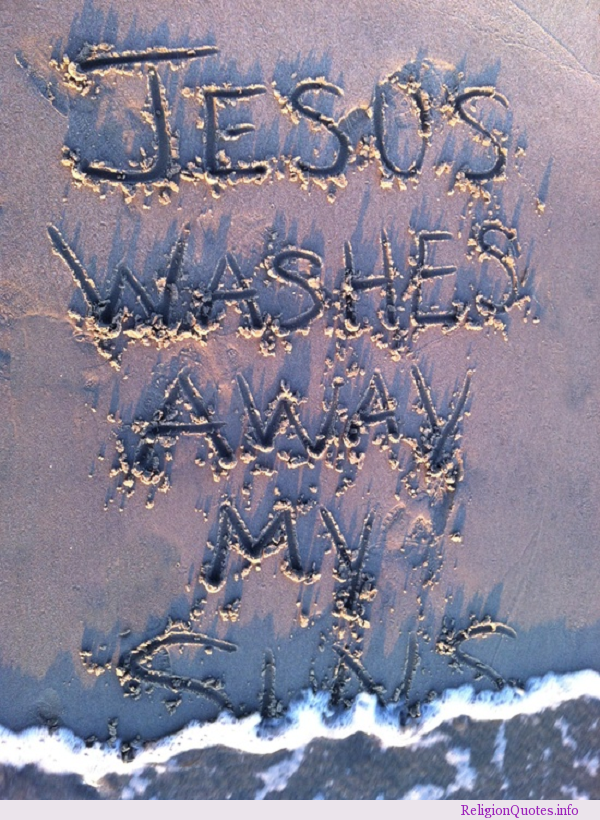 JESUS
WASHES
AWAY
MY
SINS
ReligionQuotes.info